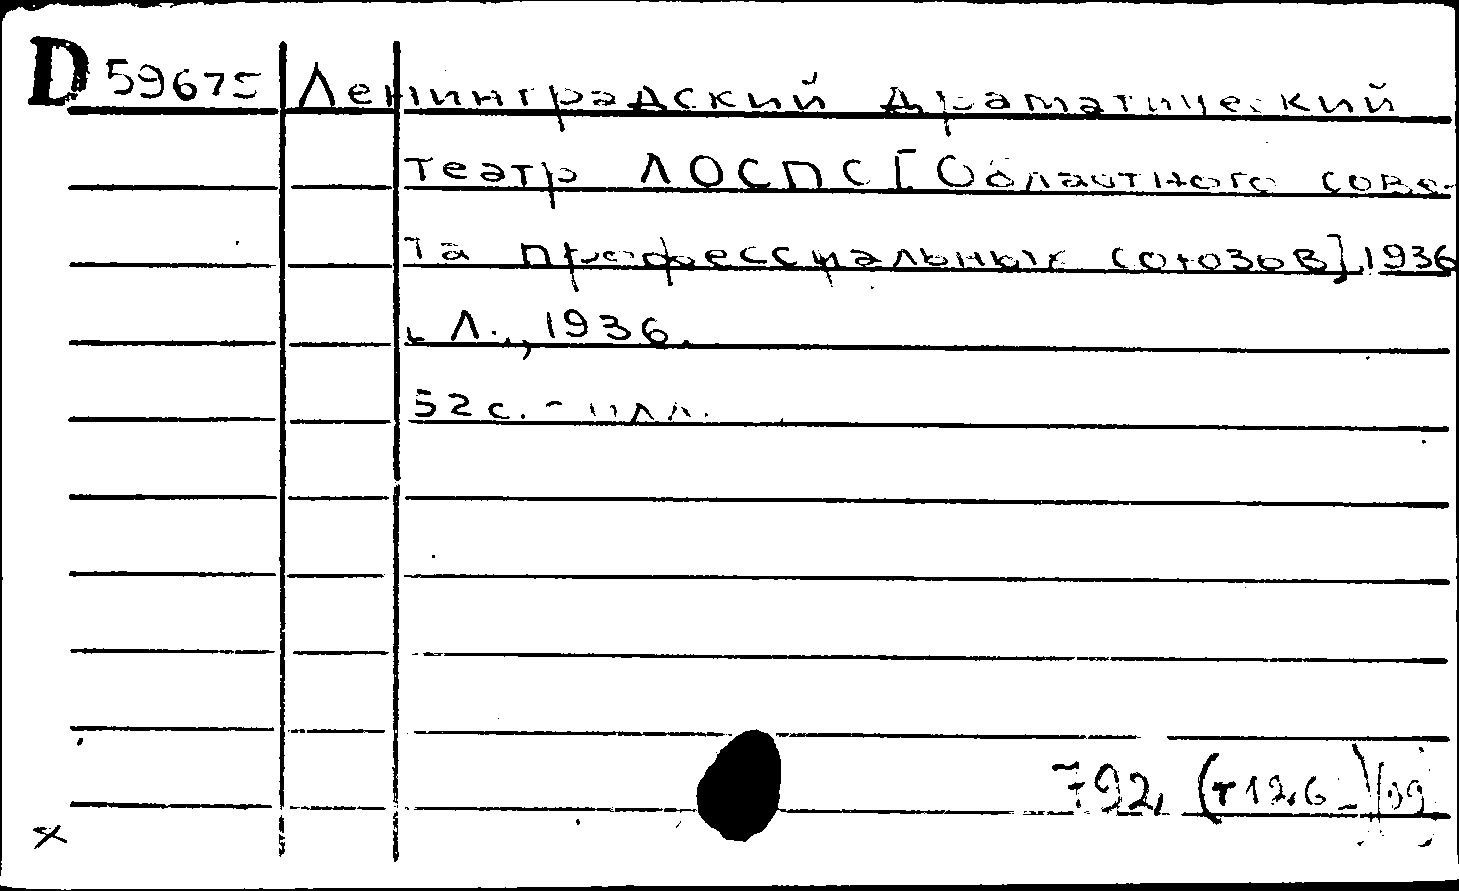 D 59675 Ленинградский драматический
театр ЛОСПС [Областного сове-
та профессиальных союзов], 1936
Л., 1936.
52 с. - илл.
792.
x